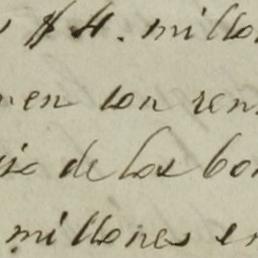 $ 4. millo
men con ren
de los bon
millones en